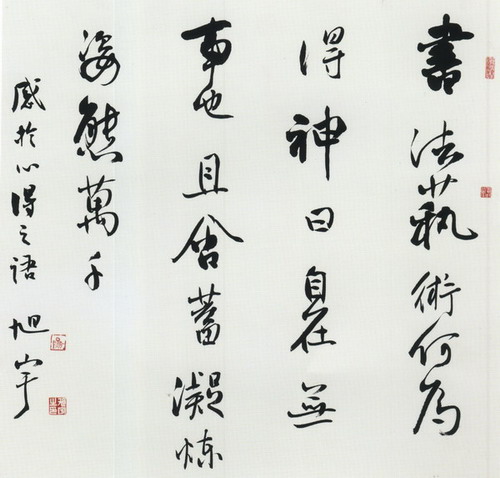 書法藝術何為
得神曰自在無
事也且含蓄凝煉
姿態萬千
感於心得之語 旭宇